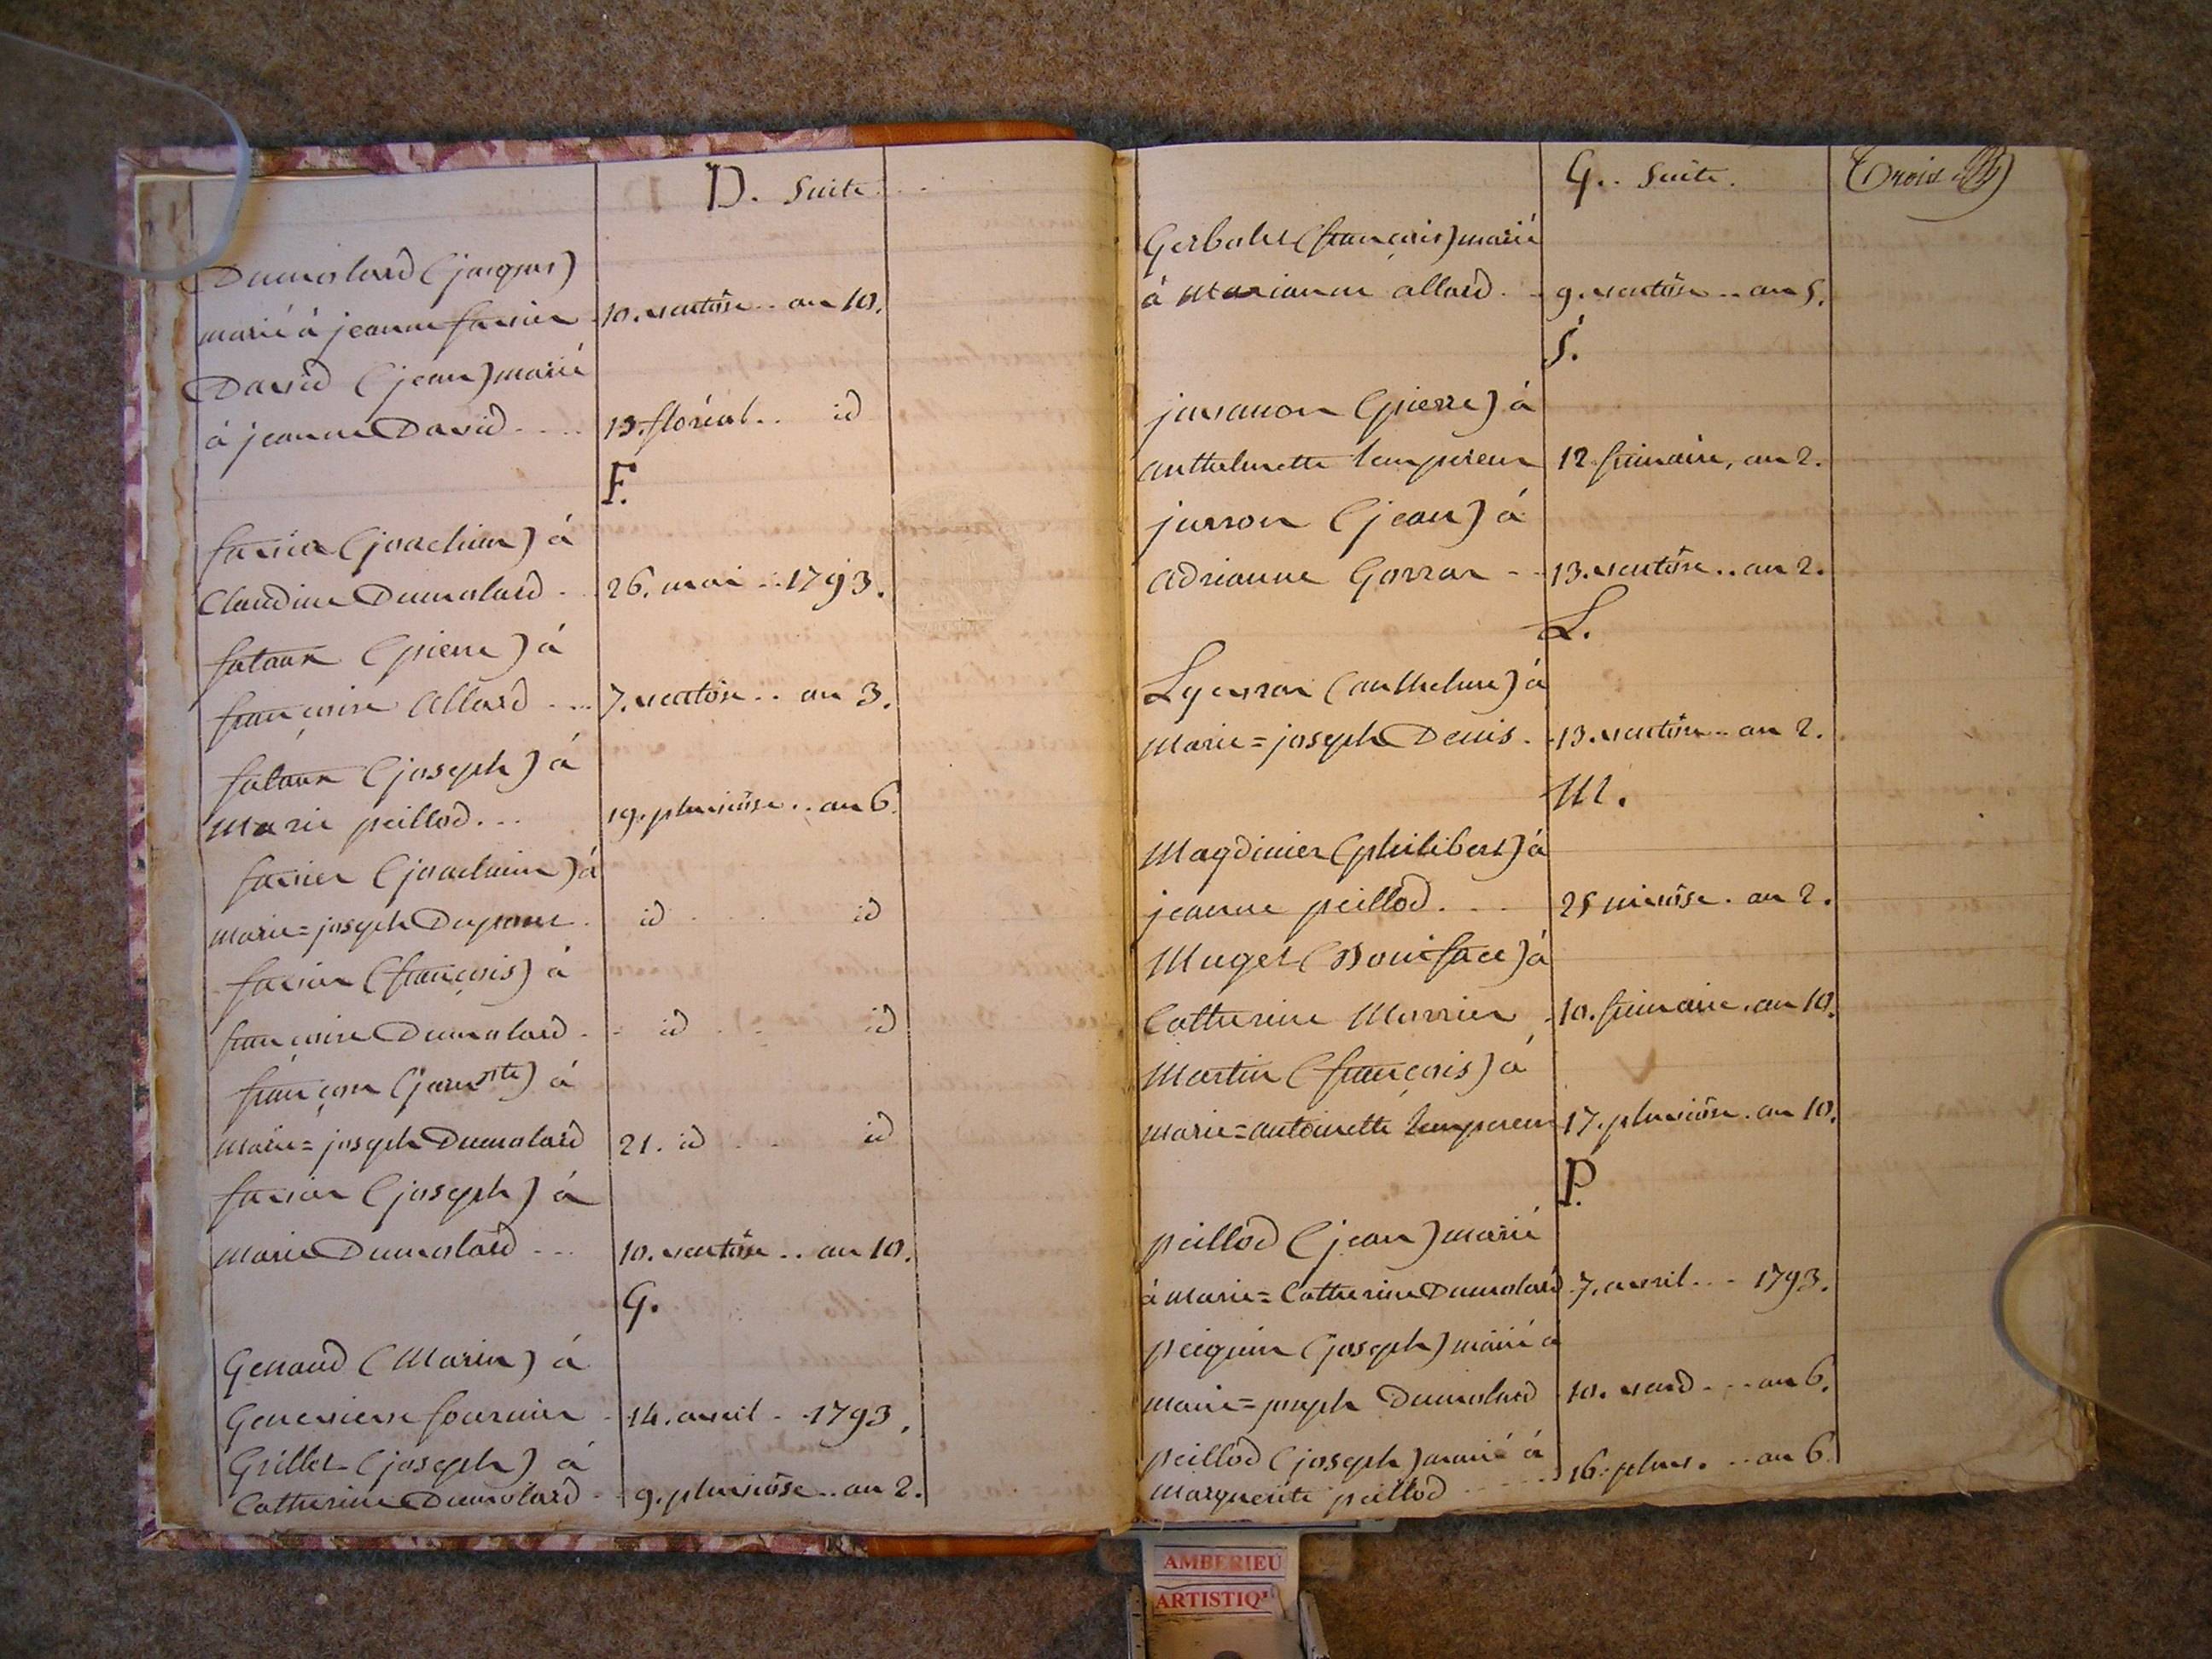 D. Suite
Dumolard (jacques)
marié à jeanne favier 10. ventôse .. an 10.
David (jean) marié
à jeanne David .... 13. floréal .. id
F.
favier (joachim) à
Claudine Dumolard . 26. mai .. 1793.
falaux (pierre) à
françoise Allard ... 7. ventôse .. an 3.
falaux (joseph) à
Marie peillod ... 19. pluviôse .. an 6.
favier (joachim) à
marie=joseph Dupont . id . . id
favier (françois) à
françoise Dumolard . - id . . id
françon (jean bte) à
marie=joseph Dumolard 21. id . . id
favier (joseph) à
marie Dumolard ... 10. ventôse .. an 10.
G.
Genaud (Marin) à
Genevieve fournier . 14. avril .. 1793.
Grillet (joseph) à
Catherine Dumolard .. 9. pluviôse .. an 2.
G.. Suite. Trois
Gerbolet (françois) marié
à Marianne allard .. 9. ventôse .. an 5.
J.
juvanon (pierre) à
anthelmette lempereur 12 frimaire, an 2.
juvron (jean) à
adrianne Gorrar .. 13. ventôse .. an 2.
L.
Lyevrar (anthelme) à
Marie=joseph Denis . 13. ventôse .. an 2.
M.
Magdinier (philibert) à
jeanne peillod ... 25 nivôse . an 2.
Muget (Boniface) à
Catherine Morrier . 10. frimaire . an 10.
Martin (françois) à
marie=antoinette lempereur 17. pluviôse . an 10.
P.
peillod (jean) marié
à Marie=Catherine Dumolard 7. avril ... 1793.
peiguin (joseph) marié à
marie=joseph Dumolard 10. vend ... an 6.
peillod (joseph) marié à
marguerite peillod .... 16. pluv. .. an 6.
AMBERIEU
ARTISTIQ